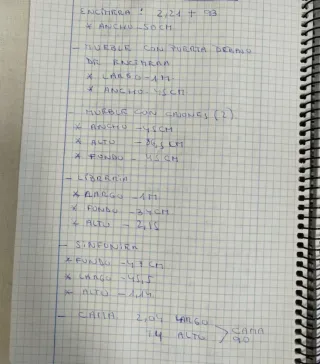 ENCIMERA: 2,21 + 93
* ANCHO - 50 CM
- MUEBLE CON PUERTA DEBAJO
DE ENCIMERA
* LARGO - 1M
* ANCHO - 45 CM
- MUEBLE CON CAJONES (2)
* ANCHO - 45 CM
* ALTO - CM
* FONDO - CM
- LIBRERIA
* LARGO - 1M
* FONDO - 34 CM
* ALTO - 2,15
- SINFONIER
* FONDO - 47 CM
* LARGO - 45,5
* ALTO - 1,14
- CAMA - 2,04 LARGO
ALTO CAMA
90